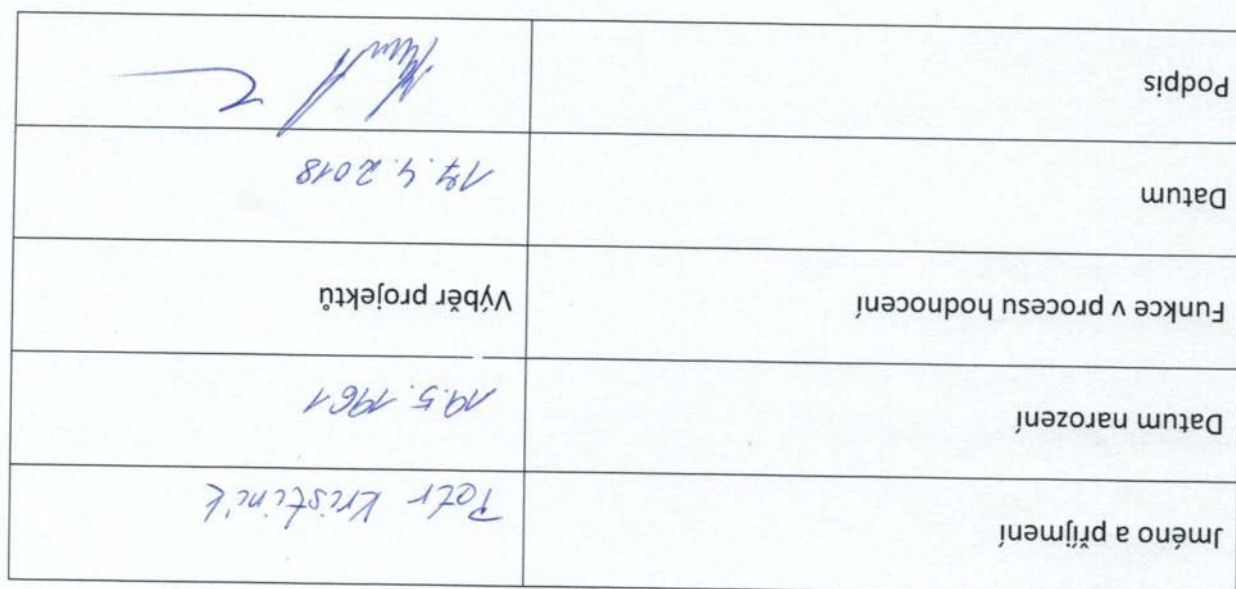 Jméno a příjmení Petr Kristiník
Datum narození 19.5.1961
Funkce v procesu hodnocení Výběr projektů
Datum 17.4.2018
Podpis